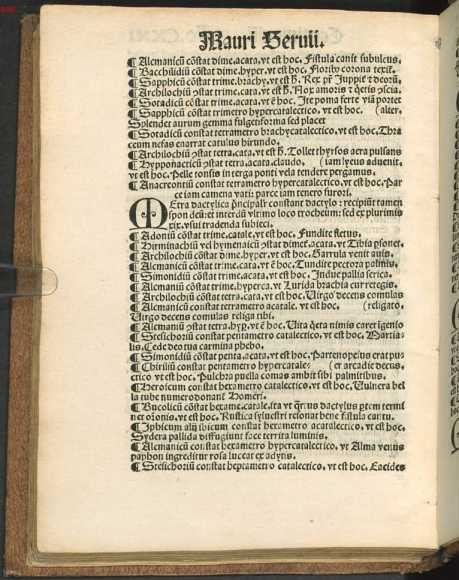 Mauri Seruii.
¶ Alemanicū cōstat dime.acata.vt est hoc. Fistula canit subulcus.
¶ Bacchilidiū cōstat dime.hyper.vt est hoc. Floribꝰ corona texit.
¶ Sapphicū cōstat trime.brachy.vt est h̄. Rex pr̄ Juppit᷑ ⁊ deorū.
¶ Archilochiū ꝯstat trime.cata.vt est h̄. Nox amoris ⁊ q̄etis ꝯscia.
¶ Sotadicū cōstat trime.acata.vt ē hoc. Ite poma ferte viā portet
¶ Sapphicū cōstat trimetro hypercatalectico.vt est hoc. (alter.
Splendet aurum gemma fulget forma sed placet
¶ Sotadicū constat tetrametro brachycatalectico.vt est hoc. Thra
ceum nefas enarrat catulus hirundo.
¶ Archilochiū ꝯstat tetra.cata.vt est h̄. Tollet thyrsos aera pulsans
¶ Hypponacticū ꝯstat tetra.acata.claudo. (iam lyeus aduenit.
vt est hoc. Pelle tonsis in terga ponti vela tendere pergamus.
¶ Anacreontiū constat tetrametro hypercatalectico.vt est hoc. Par
ce iam camena vati: parce iam tenero furori.
MEtra dactylica p̄ncipalr̄ constant dactylo: recipiūt tamen
spondeū: et interdū vltimo loco trocheum: sed ex plurimis
xix. vsui tradenda subieci.
¶ Adoniū cōstat trime.catale.vt est hoc. Fundite fletus.
¶ Hirminachiū vel hymenaicū ꝯstat dimet.acata.vt est hoc. Tibia ꝓsonet.
¶ Archilochiū cōstat dime.hyper.vt est hoc. Garrula venit auis.
¶ Alemanicū cōstat trime.cata.vt ē hoc. Tundite pectora palmis.
¶ Simonidiū cōstat trime.acata.vt est hoc. Indue pallia serica.
¶ Alemaniū cōstat trime.hyperca.vt Lurida brachia cur retegis.
¶ Archilochiū cōstat tetra.cata.vt est hoc. Uirgo decens comulas
¶ Alemanicū constat tetrametro acatale.vt est hoc. (religato.
Uirgo decens comulas religa tibi.
¶ Alemaniū ꝯstat tetra.hyp̲.vt ē hoc. Uita q̄eta nimis caret igenio
¶ Stesichoriū constat pentametro catalectico.vt est hoc. Martia-
lis. Cede deo tua carmina phebo.
¶ Simonidiū cōstat penta.acata.vt est hoc. Partenopeius erat pu-
¶ Chiriliū constat pentametro hypercatale- (er arcadie decus.
ctico vt est hoc. Pulchra puella comas ambit sibi palmitibus.
¶ Heroicum constat hexametro catalectico.vt est hoc. Uulnera bel
la tube numero donant Homeri.
¶ Bucolicū cōstat hexame.catale.ita vt q̄rtus dactylus ptem termi
net or̄onis.vt est hoc. Rustica syluestri resonat bene fistula cantu.
¶ Iphicum alij ibicum constat hexametro acatalectico.vt est hoc.
Sydera pallida diffugiunt face territa luminis.
¶ Alemanicū constat hexametro hypercatalectico.vt Alma venus
paphon ingreditur rosa luceat ex adytis.
¶ Stesichoriū constat heptametro catalectico.vt est hoc. Eacides